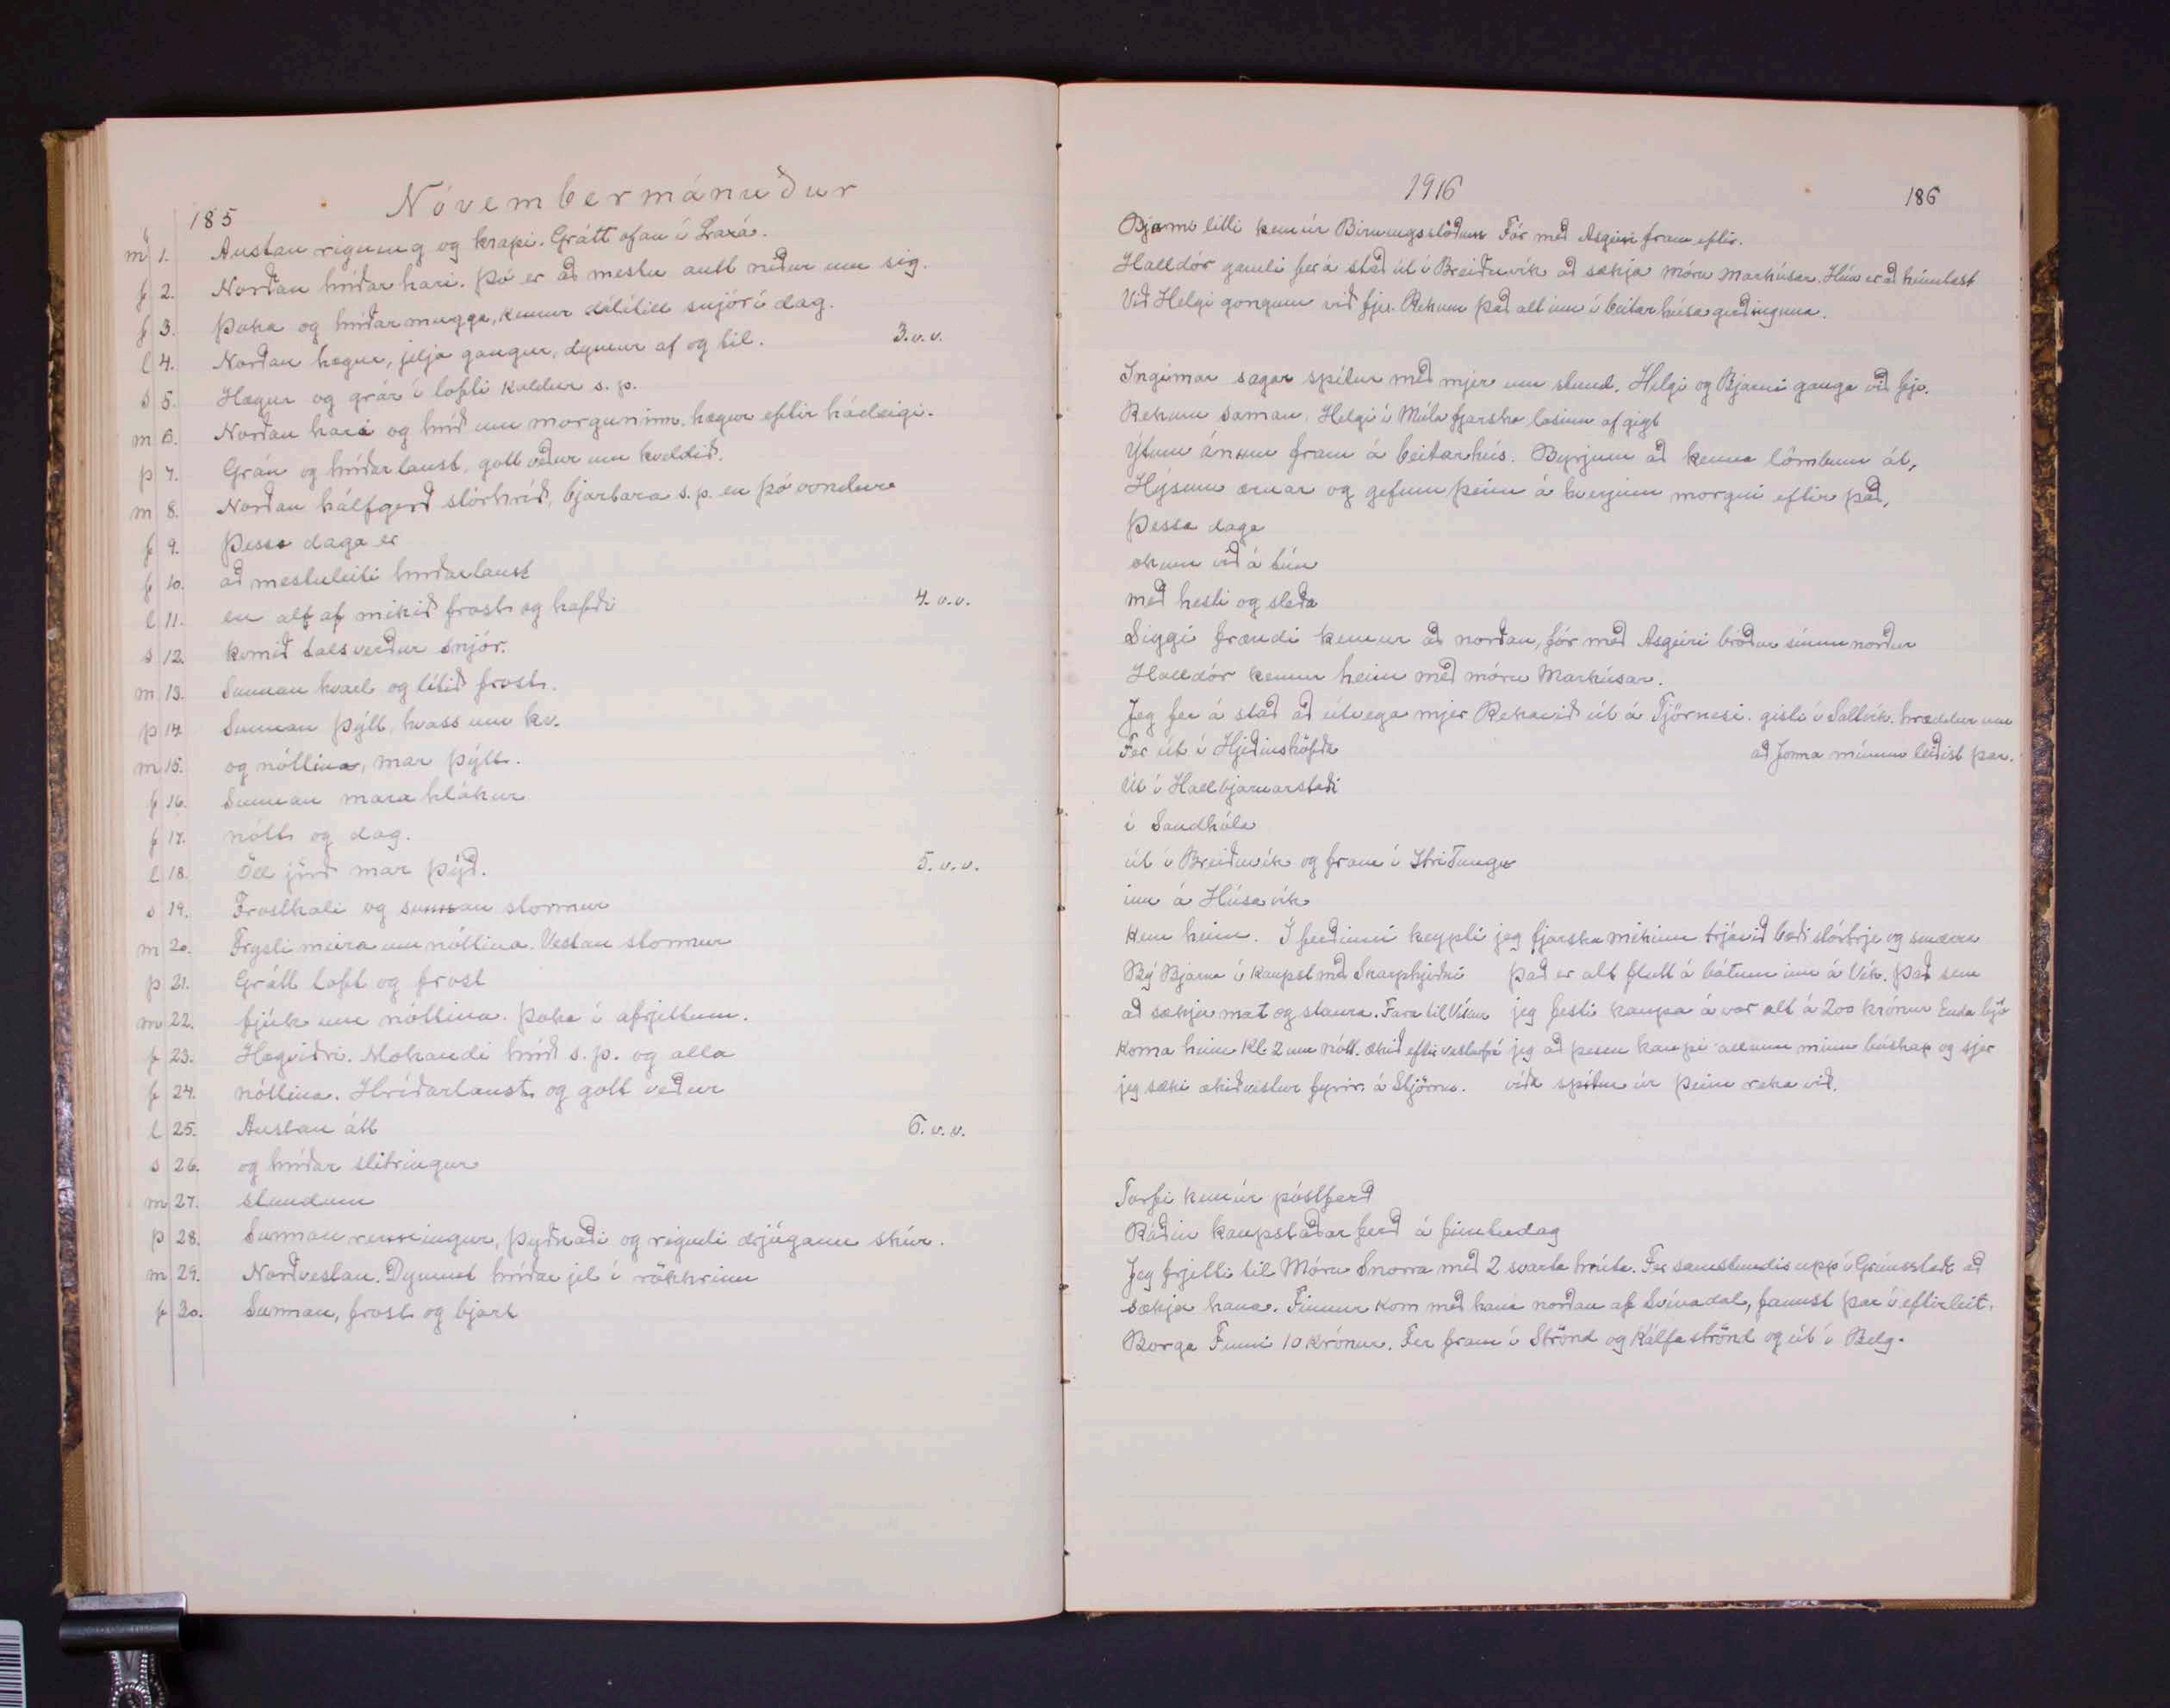 185
Nóvembermánuður
m 1. Austan rigning og krapi. Grátt ofan í Laxá.
f 2. Norðan hríðar hari. Þó er að mestu autt niður um sig.
f 3. Þoka og hríðarmugga, kemur dálítill snjór í dag.
l 4. Norðan hægur, jelja gangur, dymur af og til. 3.v.v.
s 5. Hægur og grár í lofti kaldur s.p.
m 6. Norðan hari og hríð um morguninn. hægur eftir hádeigi.
þ 7. Grán og hríðarlaust, gott veður um kveldið.
m 8. Norðan hálfgerð stórhríð, bjartara s.p. en þó vondur
f 9. Þessa daga er
f 10. að mestuleiti hríðarlaust
l 11. en alt af mikið frost og hefði 4.v.v.
s 12. komið talsverður snjór.
m 13. Sunnan hvæl og lítið frost.
þ 14. Sunnan þýtt, hvass um kv.
m 15. og nóttina, mar þýtt.
f 16. Sunnan mara hlákur
f 17. nótt og dag.
l 18. Öll jörð mar þýð. 5.v.v.
s 19. Frostkali og sunnan stormur
m 20. Frysti meira um nóttina. Vestan stormur
þ 21. Grátt loft og frost
m 22. fjúk um nóttina. Þoka í afrjettum.
f 23. Hægviðri. Mokandi hríð s.p. og alla
f 24. nóttina. Hríðarlaust og gott veður
l 25. Austan átt 6.v.v.
s 26. og hríðar slitringur
m 27. stundum
þ 28. Sunnan rensingur, þyðnaði og rigndi drjúgann skúr.
m 29. Norðvestan. Dymmt hríðar jel í rökkrinu
f 30. Sunnan, frost og bjart
1916
186
Bjarni litli kem úr Birningsstöðum Fór með Asgeiri fram eftir.
Halldór gamli fer á stað út í Breiðuvík að sækja móru Markúsar. Hún er að heimtast
Við Helgi gongum við fjeð. Rekum það alt inn í beitarhúsa girðinguna.
Ingimar sagar spítur með mjer um stund. Helgi og Bjarni ganga við fje.
Rekum saman. Helgi í Múla fjarska lasinn af gigt
Ýtum ánum fram á beitarhús. Byrjum að kenna lömbum át,
Hýsum ærnar og gefum þeim á hverjum morgni eftir það,
Þessa daga
okum við á tún
með hesti og sleða
Siggi frændi kemur að norðan, fór með Asgeiri bróður sínum norður
Halldór kemur heim með móru Markúsar.
Jeg fer á stað að útvega mjer Rekavið út á Tjörnesi. gisti í Saltvík. hræddur um
Fer út í Hjeðinshöfða að Jonna mínum leiðist þar.
Út í Hallbjarnarstaði
í Sandhóla
út í Breiðuvík og fram í Ytri Tungu
inn á Húsavík
Kem heim. Í ferðinni keypti jeg fjarska mikinn trjávið bæði stórtrje og smærra
Bý Bjarna í kaupst með Skarphjeðni Það er alt flutt á bátum inn á Vík. Það sem
að sækja mat og staura. Fara til Víkur jeg festi kaupa á var alt á 200 krónur Enda bjó
Koma heim Kl. 2 um nótt. jeg að þesum kaupi allann minn búskap og sjer
jeg sæki fyrir á Stjörnu. víða spítur úr þeim reka við.
Torfi kem úr póstferð
Ráðin kaupstaðar ferð á fimtudag
Jeg frjetti til Móru Snorra með 2 svarta hrúta. Fer samstundis upp í Grímsstaði að
sækja hana. Finnur kom með hana norðan af Svínadal, fannst þar í eftirleit.
Borga Finni 10 krónur. Fer fram í Strönd og Kálfaströnd og út í Belg.